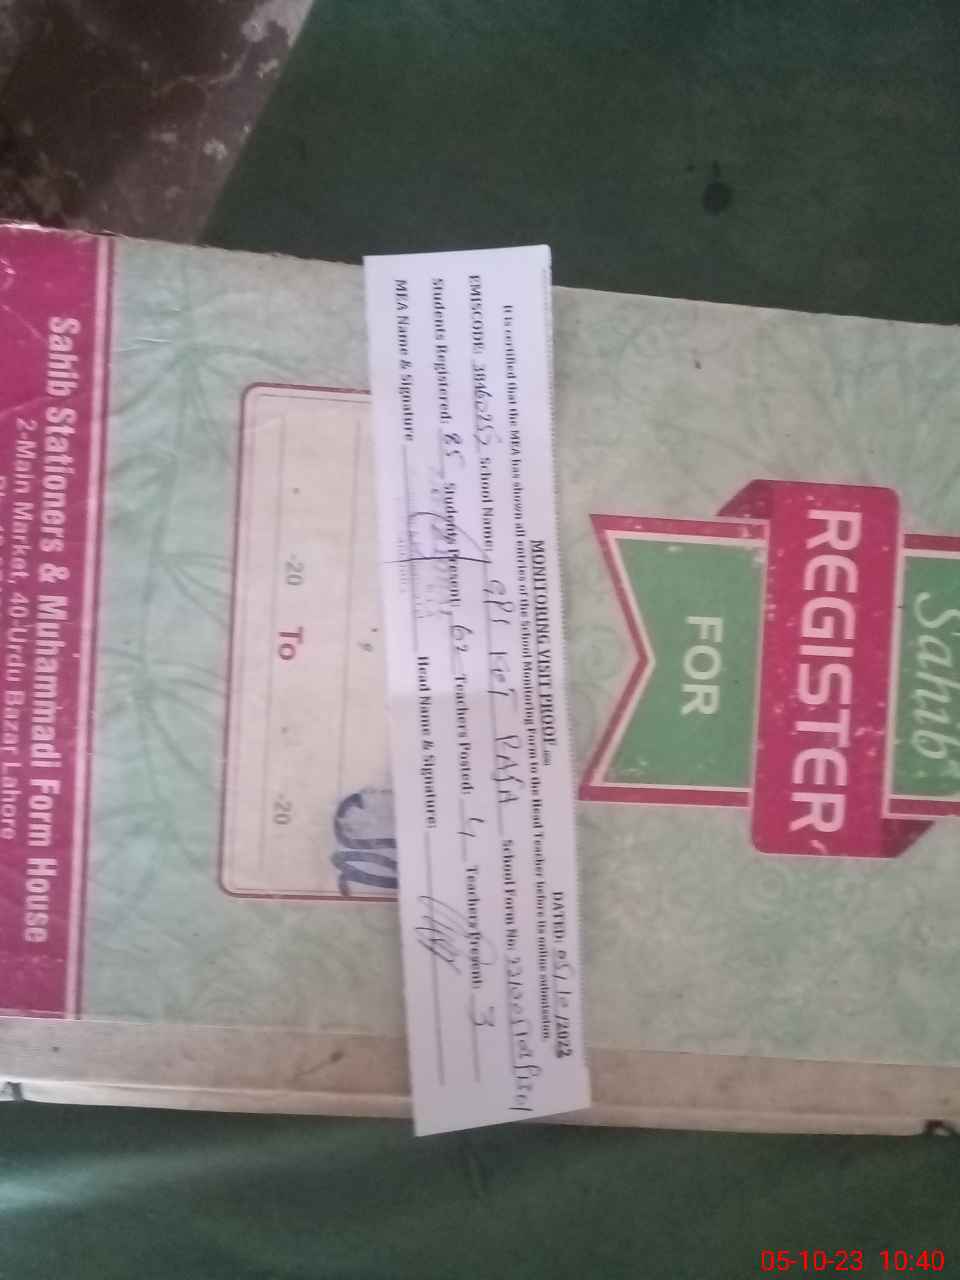 Sahib
REGISTER
FOR
MONITORING VISIT PROOF
DATED: 05/10/2022
It is certified that the MEA has shown all entries of the School Monitoring Form to the Head Teacher before its online submission.
EMISCODE: School Name: GPS School Form No:
Students Registered: 85 Students Present: 62 Teachers Posted: 4 Teachers Present: 3
MEA Name & Signature Head Name & Signature:
-20 To -20
Sahib Stationers & Muhammadi Form House
2-Main Market, 40-Urdu Bazar Lahore
05-10-23 10:40